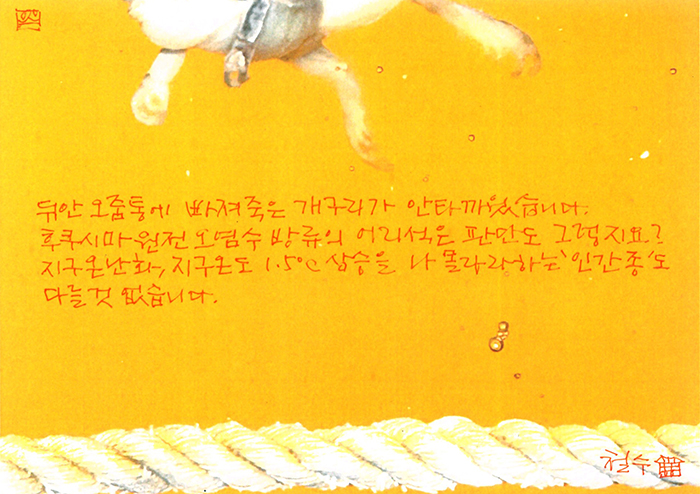 뒤안 오줌통에 빠져죽은 개구리가 안타까웠습니다.
후쿠시마 원전 오염수 방류의 어리석은 판단도 그렇지요?
지구온난화, 지구온도 1.5℃ 상승을 나 몰라라하는 '인간종'도
다를것 없습니다.
철수